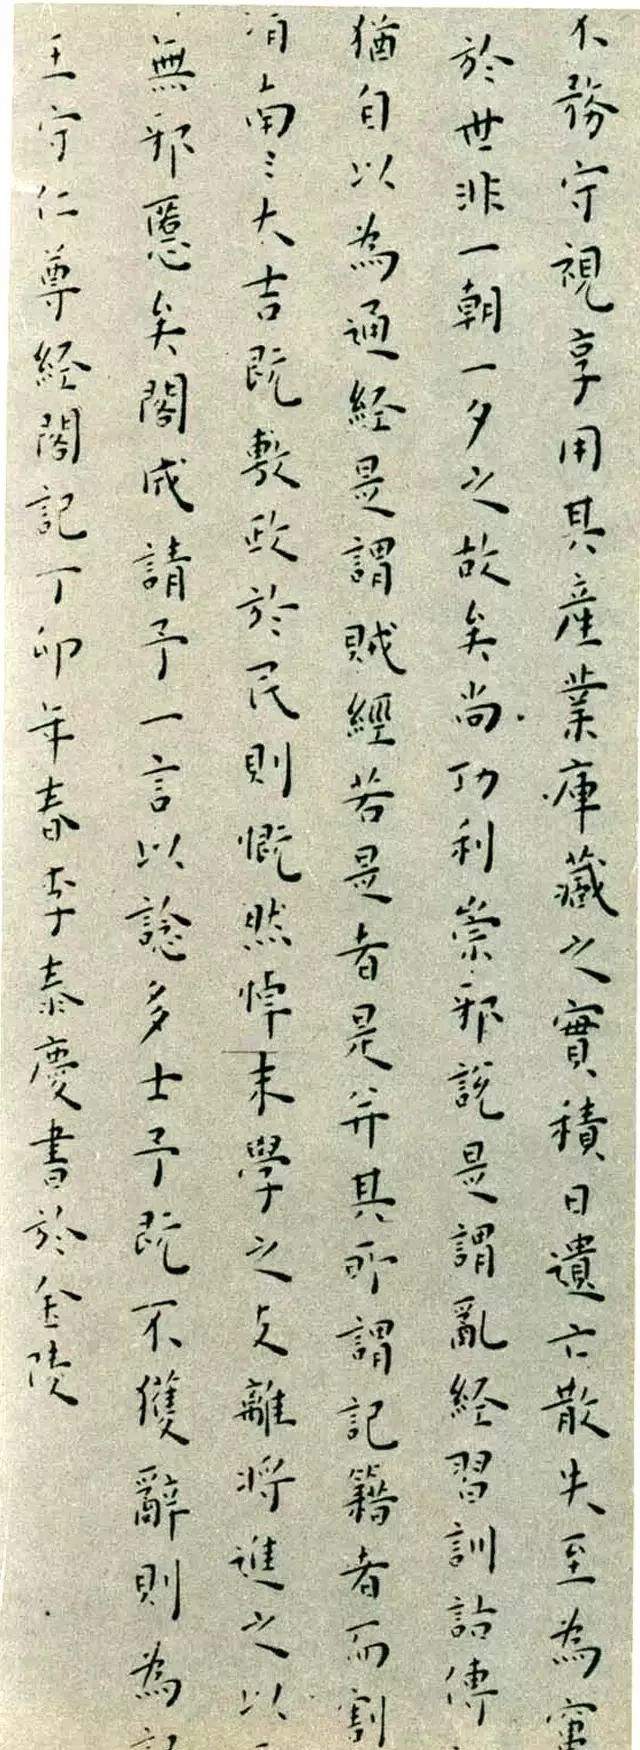 不務守視享用其産業庫藏之實積日遺亡散失至為窶
於世非一朝一夕之故矣尚功利崇邪說是謂亂经習訓詁傳
猶自以為通經是謂賊經若是者是并其所謂記籍者而割
南〻大吉既敷政於民則慨然悼末學之支離将進之以
無邪慝矣閣成請予一言以諗多士予既不獲辭則為記
王守仁尊经閣記丁卯年春李泰慶書於金陵